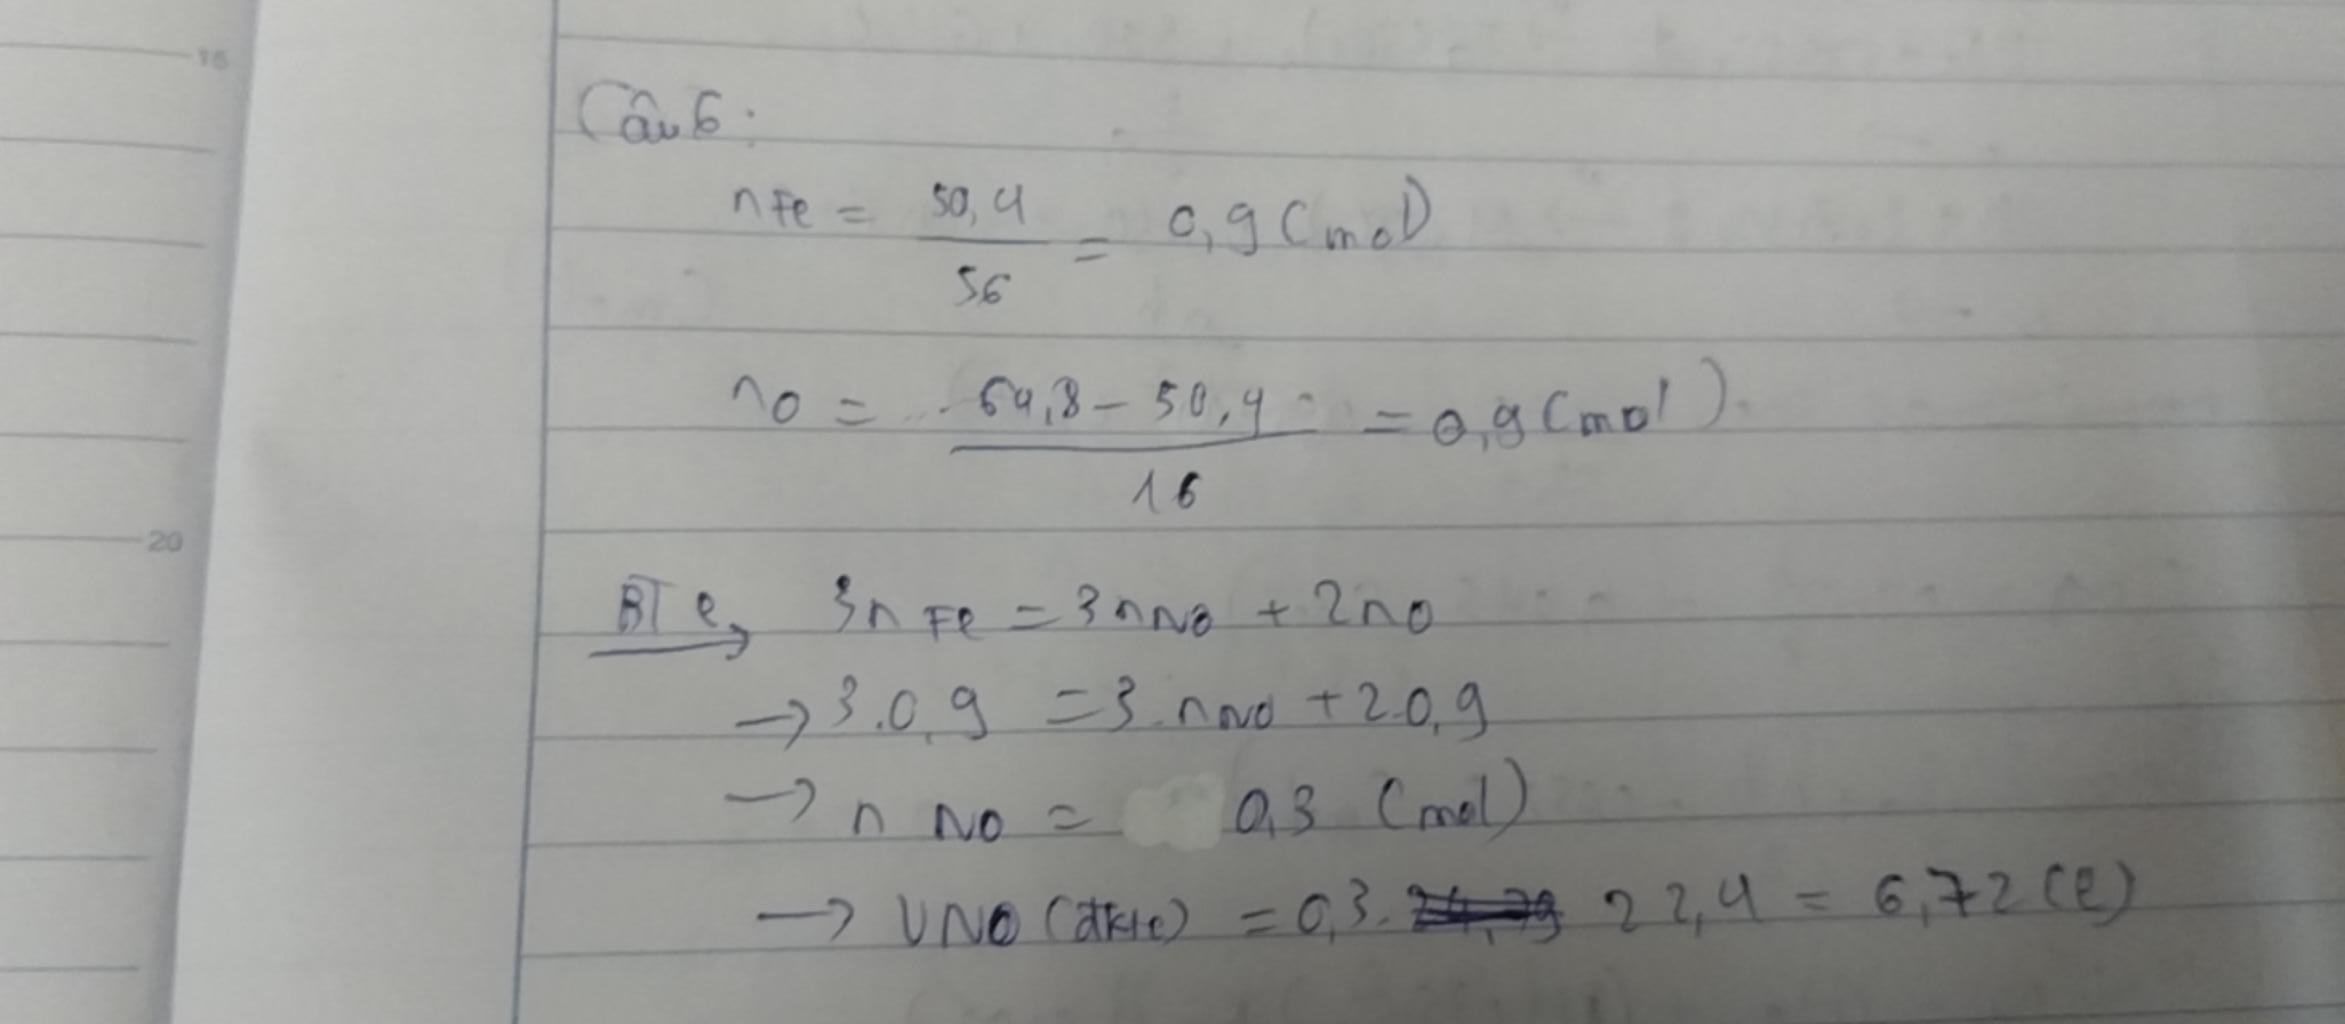 15
Câu 6:
nFe = 50,4 / 56 = 0,9 (mol)
nO = 64,8 - 50,4 / 16 = 0,9 (mol)
20
BT e → 3nFe = 3nNO + 2nO
→ 3.0,9 = 3.nNO + 2.0,9
→ nNO = 0,3 (mol)
→ VNO (đktc) = 0,3. 22,4 = 6,72 (l)